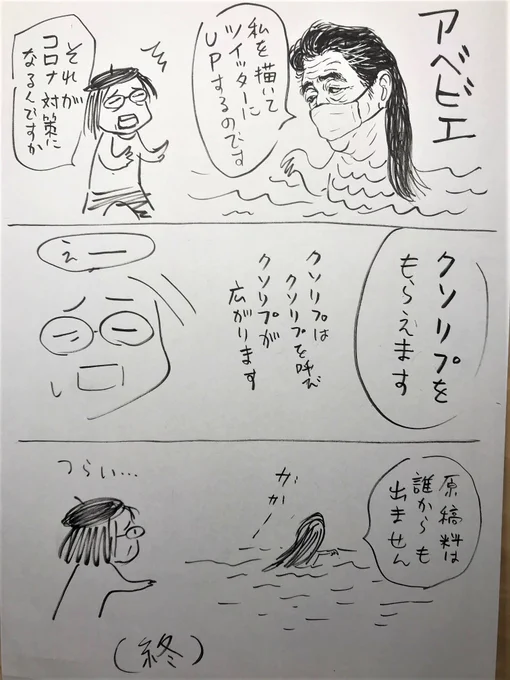 アベビエ
私を描いて
ツイッターに
UPするのです
それが
コロナ対策に
なるんですか
クソリプを
もらえます
クソリプは
クソリプを呼び
クソリプが
広がります
えー
原稿料は
誰からも
出ません
つらい…
(終)